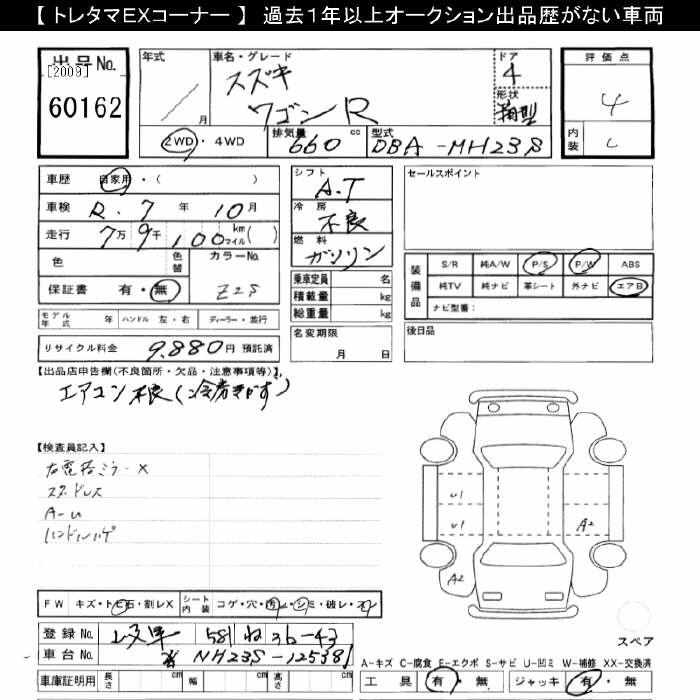 【 トレタマEXコーナー 】 過去１年以上オークション出品歴がない車両
出品 No.
[2009]
60162
年式
月
車名・グレード
スズキ
ワゴンR
ドア
4
形状
箱型
評価点
4
内装
C
2WD・4WD
排気量
660
cc
型式
DBA-MH23S
車歴
自家用・( )
車検
R. 7 年 10 月
走行
7万 9千 100 km マイル( )
色
色替
カラーNo.
Z2S
保証書 有・無
シフト
A.T
冷房
不良
燃料
ガソリン
乗車定員 名
積載量 kg
総重量 kg
セールスポイント
装備品
S/R 純A/W P/S P/W ABS
純TV 純ナビ 革シート 外ナビ エアB
ナビ型番：
モデル年式 年
ハンドル 左・右
ディーラー・並行
リサイクル料金 9,880円 預託済
名変期限
月 日
後日品
【出品店申告欄(不良箇所・欠品・注意事項等)】
エアコン不良(冷房きかず)
【検査員記入】
右電格ミラーX
スタッドレス
A-U
ハンドルハゲ
U1
U1
A2
A2
FW キズ・トビ石・割レX
シート内装
コゲ・穴・汚レ・シミ・破レ・スレ
登録 No.
岐阜 581 ね 36-43
車台 No.
MH23S-125381
スペア
A-キズ C-腐食 E-エクボ S-サビ U-凹ミ W-補修 XX-交換済
車庫証明用
長さ cm
幅 cm
高さ cm
工具 有・無
ジャッキ 有・無